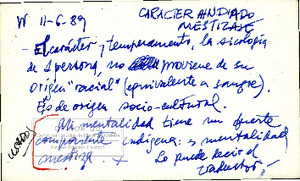 W 11-6-89 CARACTER AINDIADO
MESTIZAJE
El carácter, temperamento, la sicología
de 1 persona, no proviene de su
origen "racial" (equivalente a sangre).
Es de origen socio-cultural.
Mi mentalidad tiene un fuerte
componente indígena: es mentalidad
mestiza. Lo puede decir el
USADO